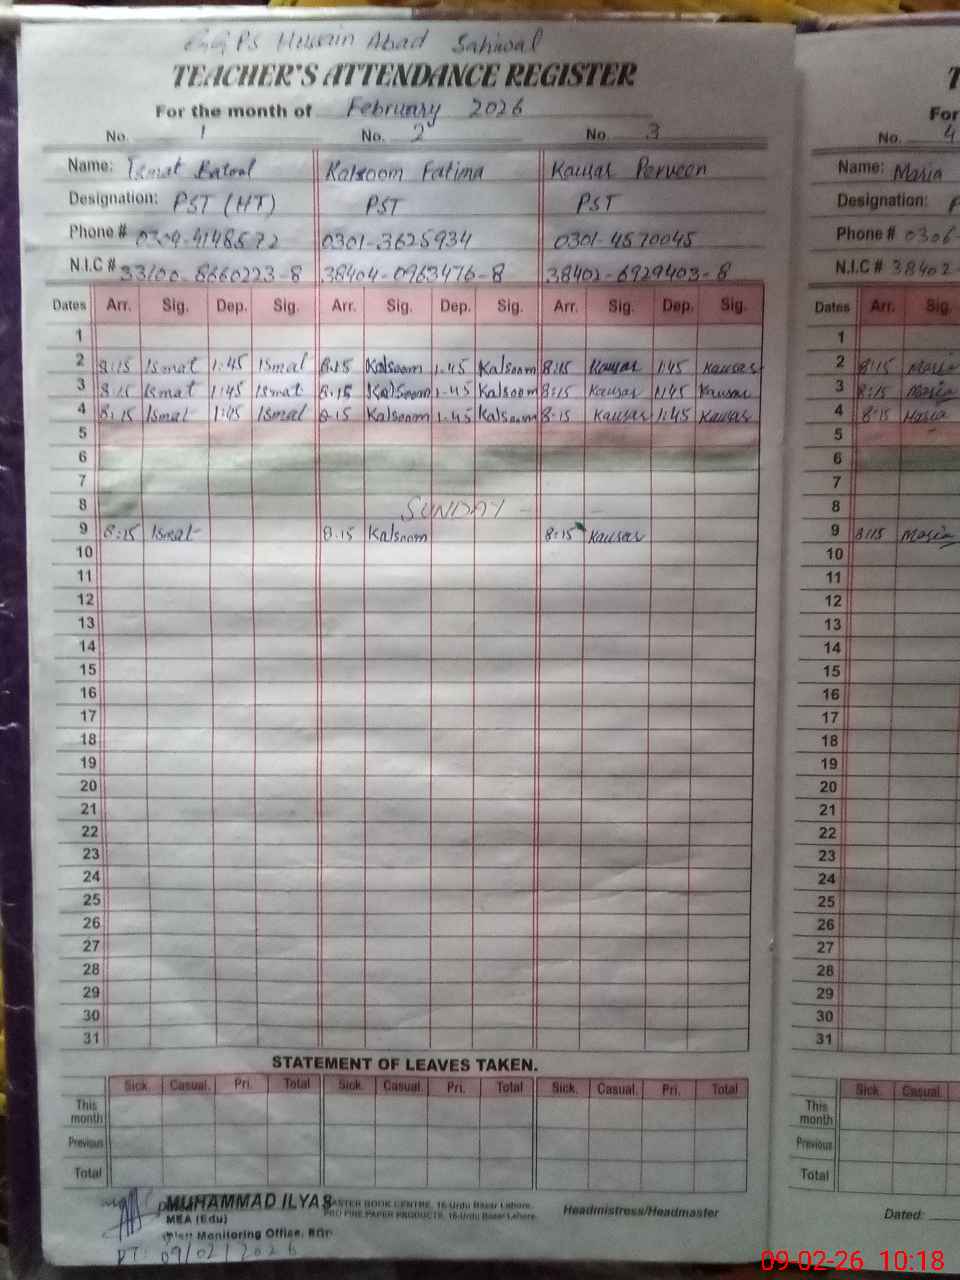 GGPS Husain Abad Sahiwal
TEACHER'S ATTENDANCE REGISTER
For the month of February 2026
No. 1 No. 2 No. 3
Name: Ismat Batool Kalsoom Fatima Kausar Perveen
Designation: PST (HT) PST PST
Phone # 0309-4148572 0301-3625934 0301-4570045
N.I.C # 33100-8660223-8 38404-0963476-8 38402-6929403-8
Dates Arr. Sig. Dep. Sig. Arr. Sig. Dep. Sig. Arr. Sig. Dep. Sig.
1
2 8:15 Ismat 1:45 Ismat 8.15 Kalsoom 1.45 Kalsoom 8:15 Kausar 1:45 Kausar
3 8:15 Ismat 1:45 Ismat 8.15 Kalsoom 1.45 Kalsoom 8:15 Kausar 1:45 Kausar
4 8:15 Ismat 1:45 Ismat 8.15 Kalsoom 1.45 Kalsoom 8:15 Kausar 1:45 Kausar
5
6
7
8 SUNDAY
9 8:15 Ismat 8.15 Kalsoom 8:15 Kausar
10
11
12
13
14
15
16
17
18
19
20
21
22
23
24
25
26
27
28
29
30
31
STATEMENT OF LEAVES TAKEN.
Sick. Casual. Pri. Total Sick. Casual. Pri. Total Sick. Casual. Pri. Total
This month
Previous
Total
MUHAMMAD ILYAS
MEA (Edu)
Monitoring Office,
MASTER BOOK CENTRE, 16-Urdu Bazar Lahore.
FINE PAPER PRODUCTS, 16-Urdu Bazar Lahore.
Headmistress/Headmaster
DT: 09/02/2026
For
No. 4
Name: Maria
Designation:
Phone # 0306-
N.I.C # 38402-
Dates Arr. Sig.
1
2 8:15 Maria
3 8:15 Maria
4 8:15 Maria
5
6
7
8
9 8:15 Maria
10
11
12
13
14
15
16
17
18
19
20
21
22
23
24
25
26
27
28
29
30
31
Sick. Casual.
This month
Previous
Total
Dated:
09-02-26 10:18